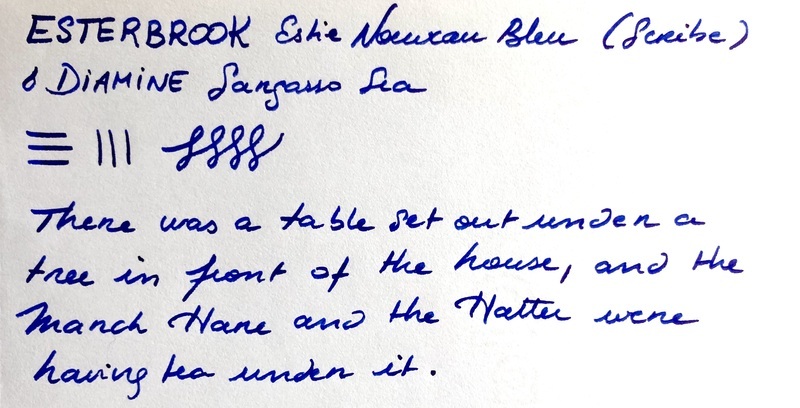 ESTERBROOK Estie Nouveau Bleu (Scribe)
💧 DiAMiNE Sargasso Sea
There was a table set out under a
tree in front of the house, and the
March Hare and the Hatter were
having tea under it.